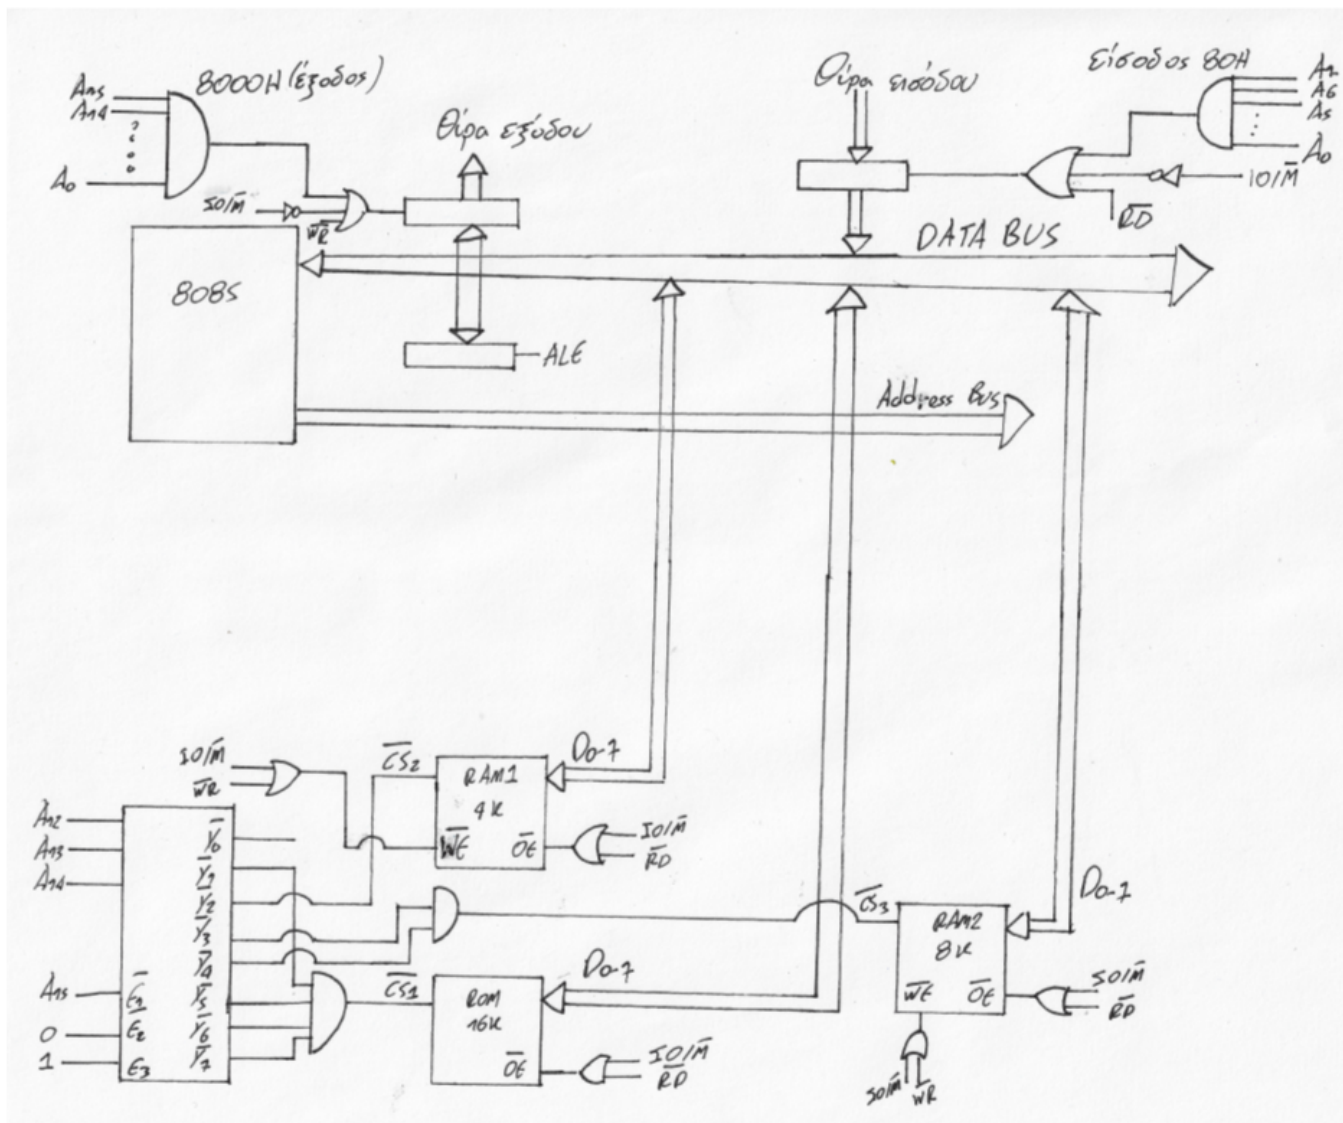 8000H (έξοδος)
A15
A14
A0
Θύρα εξόδου
IO/M̅
W̅R̅
Θύρα εισόδου
είσοδος 80H
A7
A6
A5
A0
IO/M̅
R̅D̅
DATA BUS
8085
ALE
Address Bus
IO/M̅
W̅R̅
C̅S̅2
RAM1
4K
W̅E̅
O̅E̅
D0-7
IO/M̅
R̅D̅
A12
A13
A14
A15
0
1
E̅1
E̅2
E3
Y̅0
Y̅1
Y̅2
Y̅3
Y̅4
Y̅5
Y̅6
Y̅7
C̅S̅1
ROM
16K
O̅E̅
D0-7
IO/M̅
R̅D̅
C̅S̅3
RAM2
8K
W̅E̅
O̅E̅
D0-7
IO/M̅
R̅D̅
IO/M̅
W̅R̅